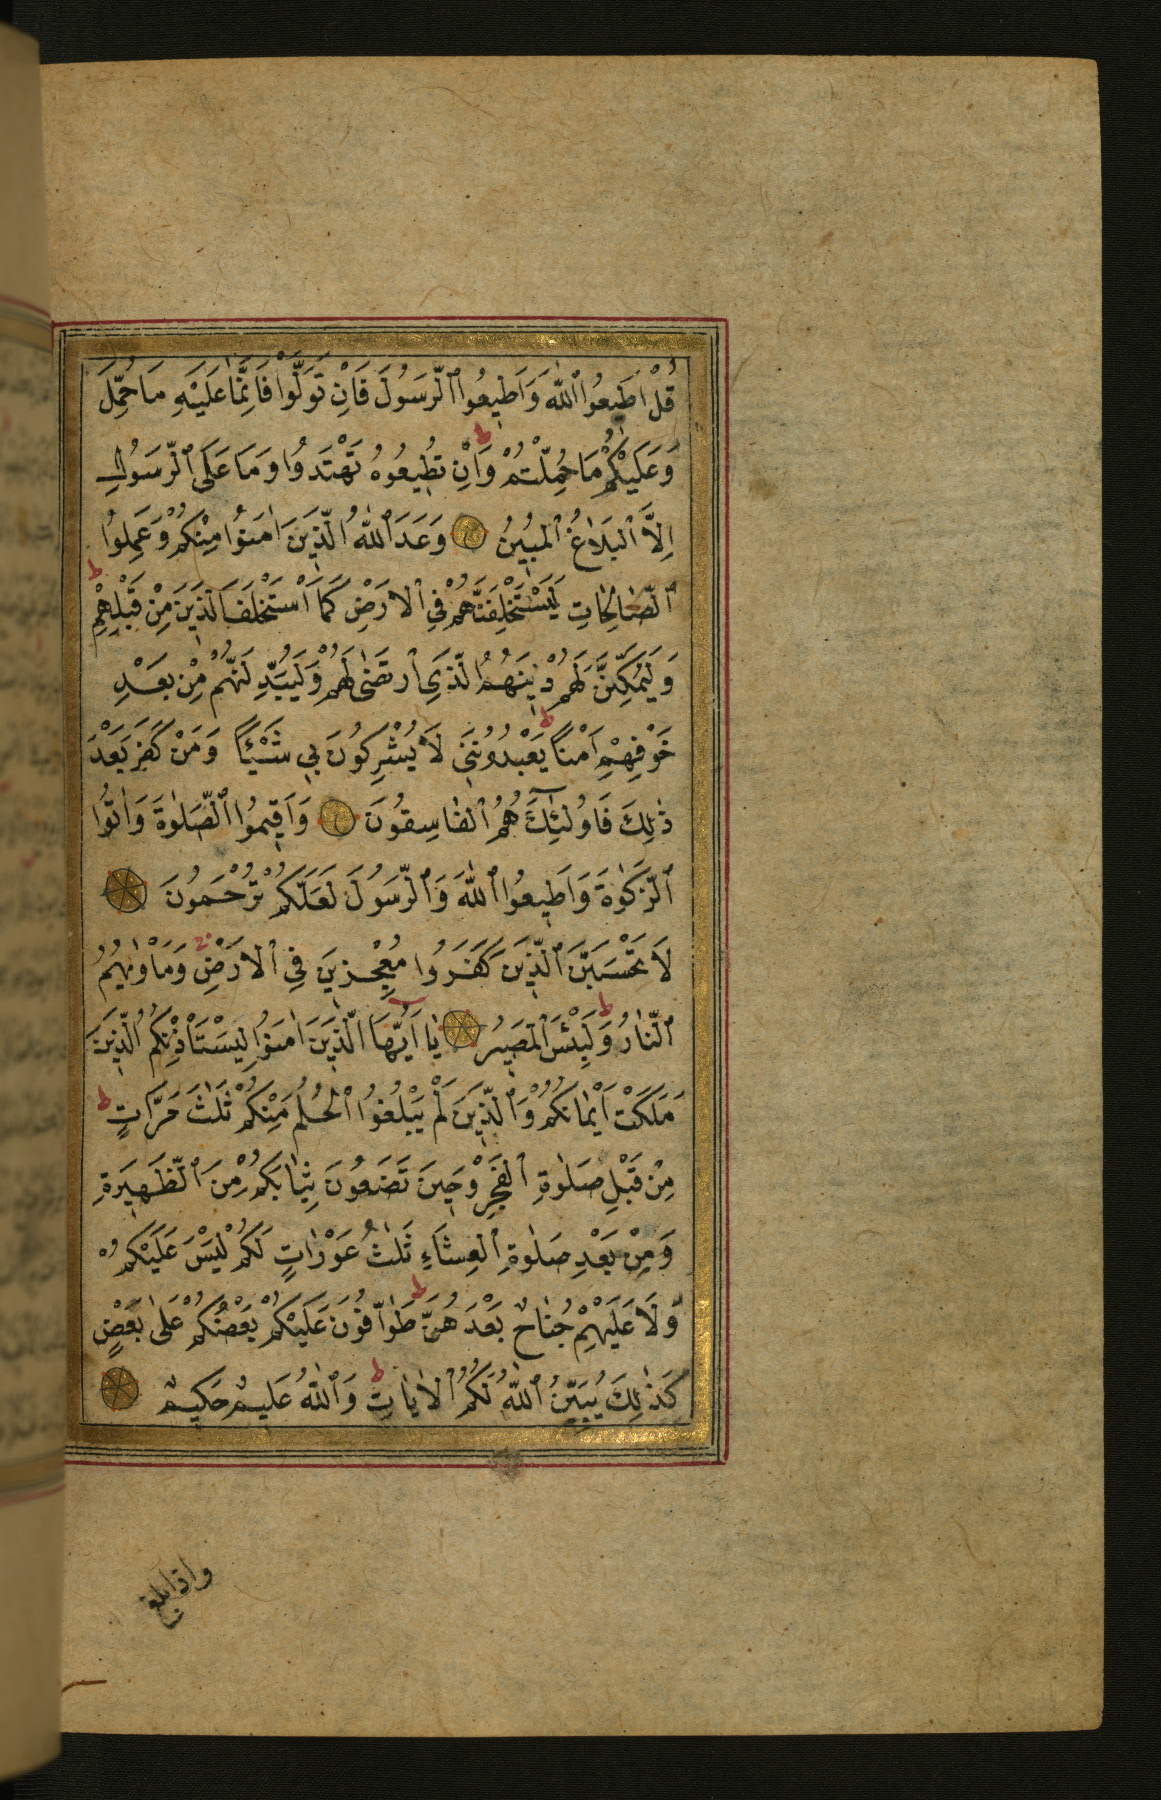 قُلْ اَطِيعُوا ٱللّٰهَ وَاَطِيعُوا ٱلرَّسُولَ فَاِنْ تَوَلَّوْا فَاِنَّمَا عَلَيْهِ مَا حُمِّلَ
وَعَلَيْكُمْ مَا حُمِّلْتُمْ ط وَاِنْ تُطِيعُوهُ تَهْتَدُوا وَمَا عَلَى ٱلرَّسُولِ
اِلَّا ٱلْبَلَاغُ ٱلْمُبِينُ وَعَدَ ٱللّٰهُ ٱلَّذِينَ اٰمَنُوا مِنْكُمْ وَعَمِلُوا
ٱلصَّالِحَاتِ لَيَسْتَخْلِفَنَّهُمْ فِي ٱلْاَرْضِ كَمَا ٱسْتَخْلَفَ ٱلَّذِينَ مِنْ قَبْلِهِمْ ط
وَلَيُمَكِّنَنَّ لَهُمْ دِينَهُمُ ٱلَّذِي ٱرْتَضٰى لَهُمْ وَلَيُبَدِّلَنَّهُمْ مِنْ بَعْدِ
خَوْفِهِمْ اَمْنًا ط يَعْبُدُونَنِي لَا يُشْرِكُونَ بِي شَيْئًا وَمَنْ كَفَرَ بَعْدَ
ذٰلِكَ فَاُولٰئِكَ هُمُ ٱلْفَاسِقُونَ وَاَقِيمُوا ٱلصَّلٰوةَ وَاٰتُوا
ٱلزَّكٰوةَ وَاَطِيعُوا ٱللّٰهَ وَٱلرَّسُولَ لَعَلَّكُمْ تُرْحَمُونَ
لَا تَحْسَبَنَّ ٱلَّذِينَ كَفَرُوا مُعْجِزِينَ فِي ٱلْاَرْضِ وَمَاْوٰيهُمُ
ٱلنَّارُ ط وَلَبِئْسَ ٱلْمَصِيرُ يَا اَيُّهَا ٱلَّذِينَ اٰمَنُوا لِيَسْتَاْذِنْكُمُ ٱلَّذِينَ
مَلَكَتْ اَيْمَانُكُمْ وَٱلَّذِينَ لَمْ يَبْلُغُوا ٱلْحُلُمَ مِنْكُمْ ثَلٰثَ مَرَّاتٍ ط
مِنْ قَبْلِ صَلٰوةِ ٱلْفَجْرِ وَحِينَ تَضَعُونَ ثِيَابَكُمْ مِنَ ٱلظَّهِيرَةِ
وَمِنْ بَعْدِ صَلٰوةِ ٱلْعِشَاءِ ثَلٰثُ عَوْرَاتٍ لَكُمْ لَيْسَ عَلَيْكُمْ
وَلَا عَلَيْهِمْ جُنَاحٌ بَعْدَهُنَّ ط طَوَّافُونَ عَلَيْكُمْ بَعْضُكُمْ عَلٰى بَعْضٍ
كَذٰلِكَ يُبَيِّنُ ٱللّٰهُ لَكُمُ ٱلْاٰيَاتِ ط وَٱللّٰهُ عَلِيمٌ حَكِيمٌ
واذا بلغ